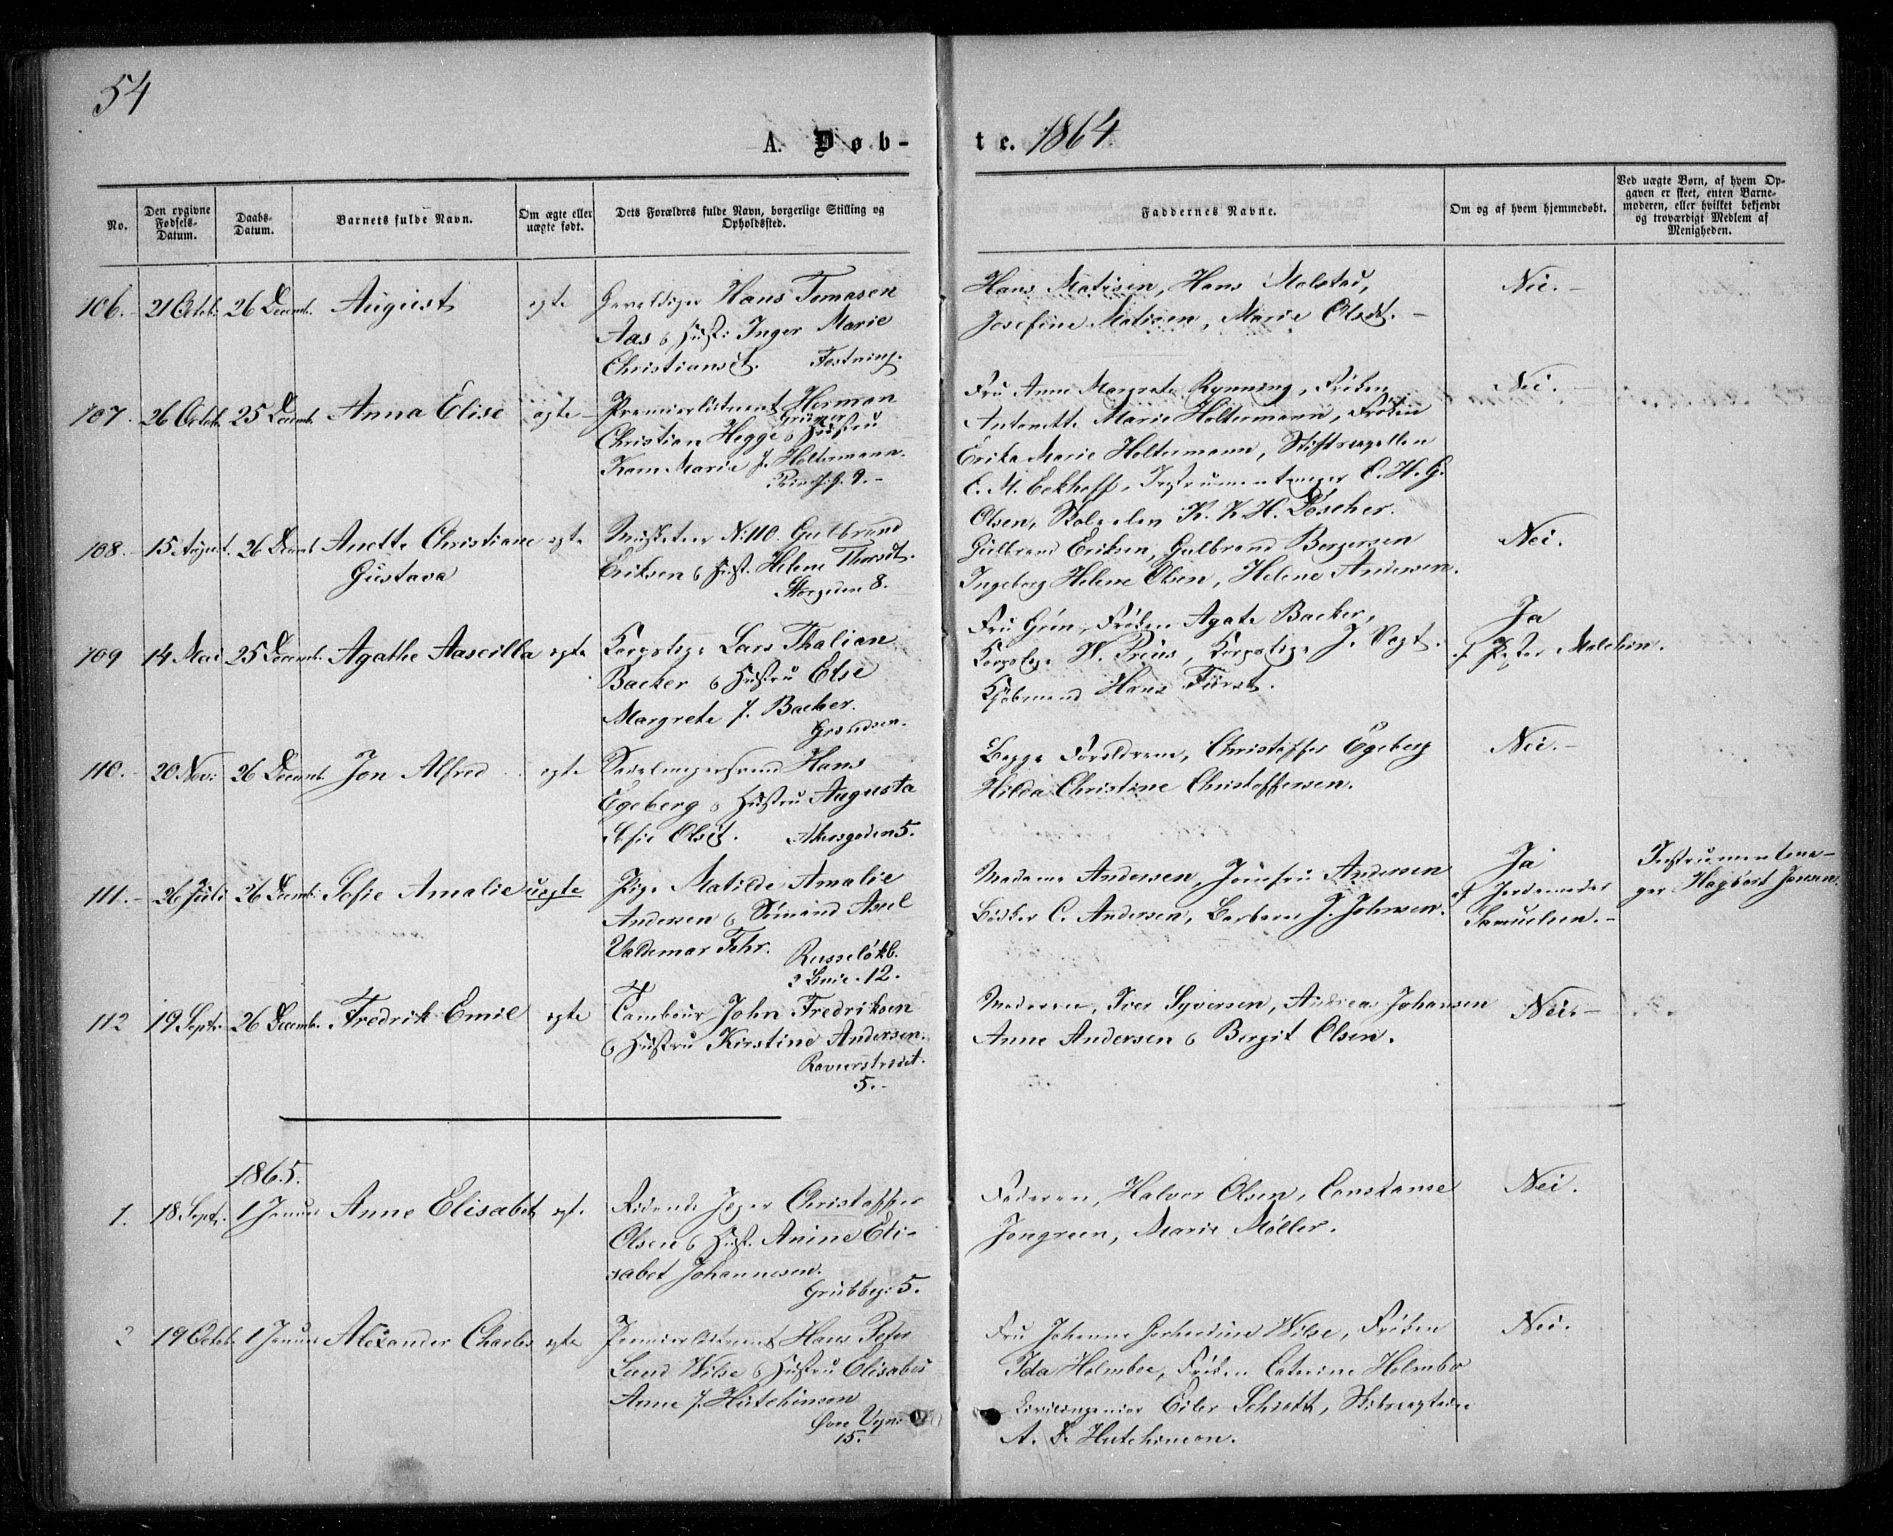 54
A. Døb-
te. 1864.
No.
Den opgivne Fødsels-Datum.
Daabs-Datum.
Barnets fulde Navn.
Om ægte eller uægte født.
Dets Forældres fulde Navn, borgerlige Stilling og Opholdssted.
Faddernes Navne.
Om og af hvem hjemmedøbt.
Ved uægte Børn, af hvem Op-
gaven er skeet, enten Barne-
moderen, eller hvilket bekjendt
og troværdigt Medlem af
Menigheden.
106. 21 Octob. 26 Decemb. August egte Hans Tomasen
Aas & Hust: Inger Marie
Christiansd. Festning.
Hans Matisen, Hans Molstad,
Josefine Matisen, Marie Olsdt. –
Nei. –
107. 26 Octob. 25 Decemb. Anna Elise egte Premierlietnent Herman
Christian Hegge & Hustru
Karn Marie f. Holtermann.
Prindsg. 9. –
Fru Anne Margrete Rynning, Frøken
Antonette Marie Holtermann, Frøken
Erika Marie Holtermann, Stiftscapellan
C. M. Eckhoff, Instrumentmager C. H. G.
Olsen, K. K. H. Poscher.
Nei. –
108. 15 August. 26 Decemb Anette Christiane egte Musketeer No: 110. Gulbrand
Gustava
Eriksen & Hust. Helene Thorsdt.
Storgaden 8.
Gulbrand Eriksen, Gulbrand Bergersen
Ingeborg Helene Olsen, Helene Andersen.
Nei.
109 14 Mai 25 Decemb. Agathe Aascilla egte Korpslege Lars Thalian
Backer & Hustru Else
Margrete f. Backer.
Grøndsen.
Fru Grön, Frøken Agate Backer,
Korpslege W. Preus, Korpslege J. Vogt.
Kjøbmand Hans Fürst.
Ja
af Pastor Malthin.
110. 20 Nov: 26 Decemb. Jon Alfred egte Hans
Egeberg & Hustru Augusta
Sofie Olsdt. Akersgaden 5.
Begge Forældrene, Christoffer Egeberg
Hilda Christine Christoffersen.
Nei. –
111. 26 Juli 26 Decemb. Sofie Amalie uegte Pige Matilde Amalie
Andersen & Sømand Axel
Valdemar Fehr. Russeløkb.
2 Linie. 12.
Madame Andersen, Jomfru Andersen
Bødker C. Andersen, Barbara J. Johnsen.
Ja
af Jordemoder
Samuelsen. –
Instrumentma-
ger Hagbart Jensen.
112 19 Septr. 26 Decemb. Fredrik Emil egte Tambour John Fredriksen
& Hustru Kirstine Andersen.
5. –
Moderen, Iver Syversen, Andrea Johansen
Anne Andersen & Bergit Olsen.
Nei. –
1865.
1. 18 Septr. 1 Januar Anne Elisabet egt. Ridende Jeger Christoffer
Olsen & Hust. Anine Eli-
sabet Johannesen.
Grubbeg: 5.
Faderen, Halvor Olsen, Constanse
Jongreen, Marie Møller.
Nei.
2 19 Octob. 1 Januar Alexander Charles egte Premierlietnent Hans Peter
Lund Wilse & Hustru Elisabet
Anne f. Hutchinson
15.
Fru Johanne Gerhardine Wilse, Frøken
Ida Holmboe, Frøken Catarine Holmbo
Civilingeniør Eiler Schiøtt,
A. F. Hutchinson.
Nei.